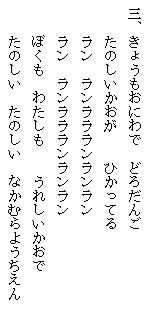 三、きょうもおにわで　どろだんご
たのしいかおが　ひかってる
ラン　ランラララランランラン
ラン　ランラララランランラン
ぼくも　わたしも　うれしいかおで
たのしい　たのしい　なかむらようちえん